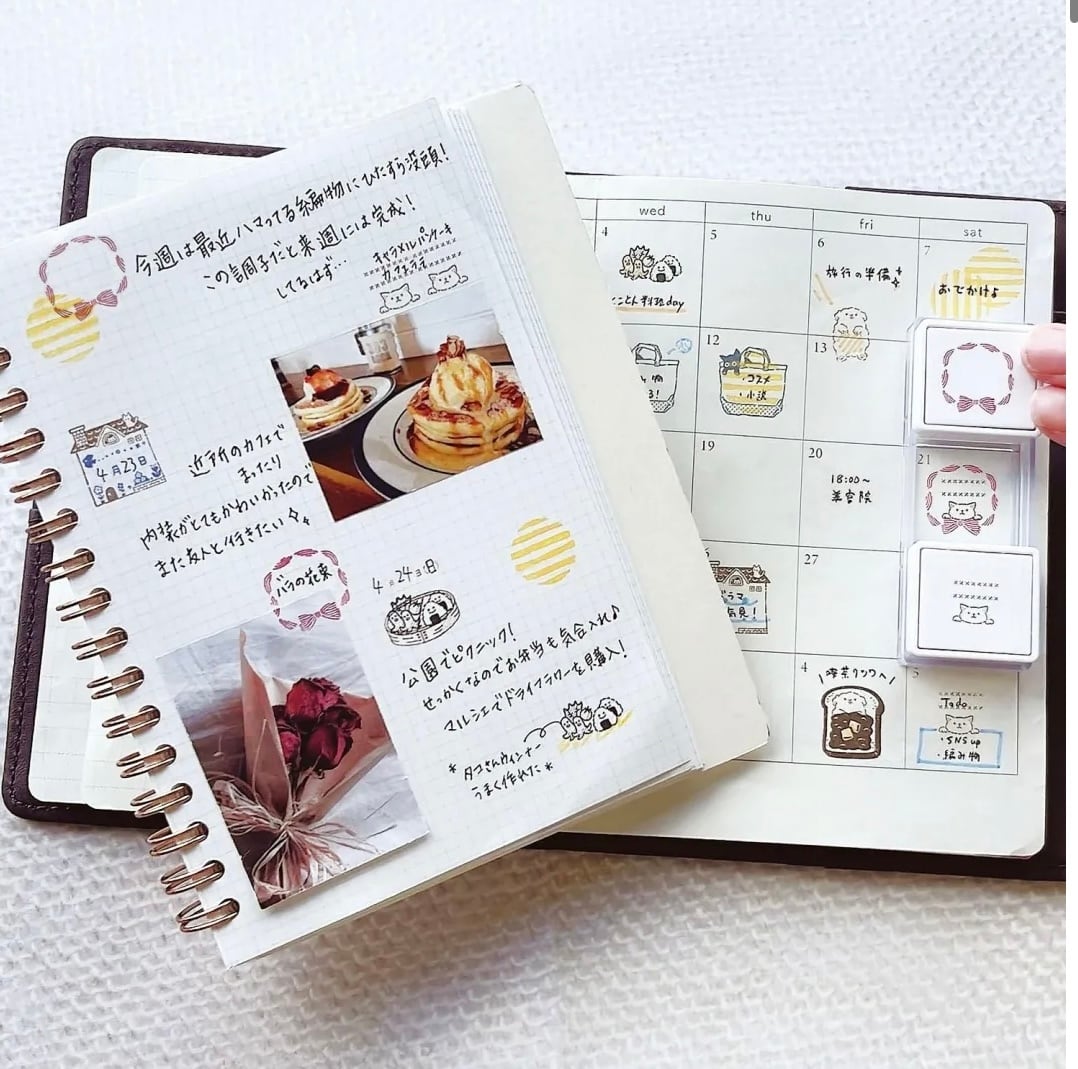 今週は最近ハマってる編物にひたすら没頭!
この調子だと来週には完成!
してるはず…
キャラメルパンケーキ
カフェラテ
4月23日
近所のカフェで
まったり
内装がとてもかわいかったので
また友人と行きたい
バラの花束
4月24日(日)
公園でピクニック!
せっかくなのでお弁当も気合入れ♪
マルシェでドライフラワーを購入!
*タコさんウィンナー
うまく作れた*
wed thu fri sat
4 5 6 7
とことん料理day
旅行の準備
おでかけ♪
12 13
物
る!
・コスメ
・小説
19 20 21
18:00~
美容院
27
ドラマ
見!
4 5
喫茶クツワへ
To do
・SNS up
・編み物